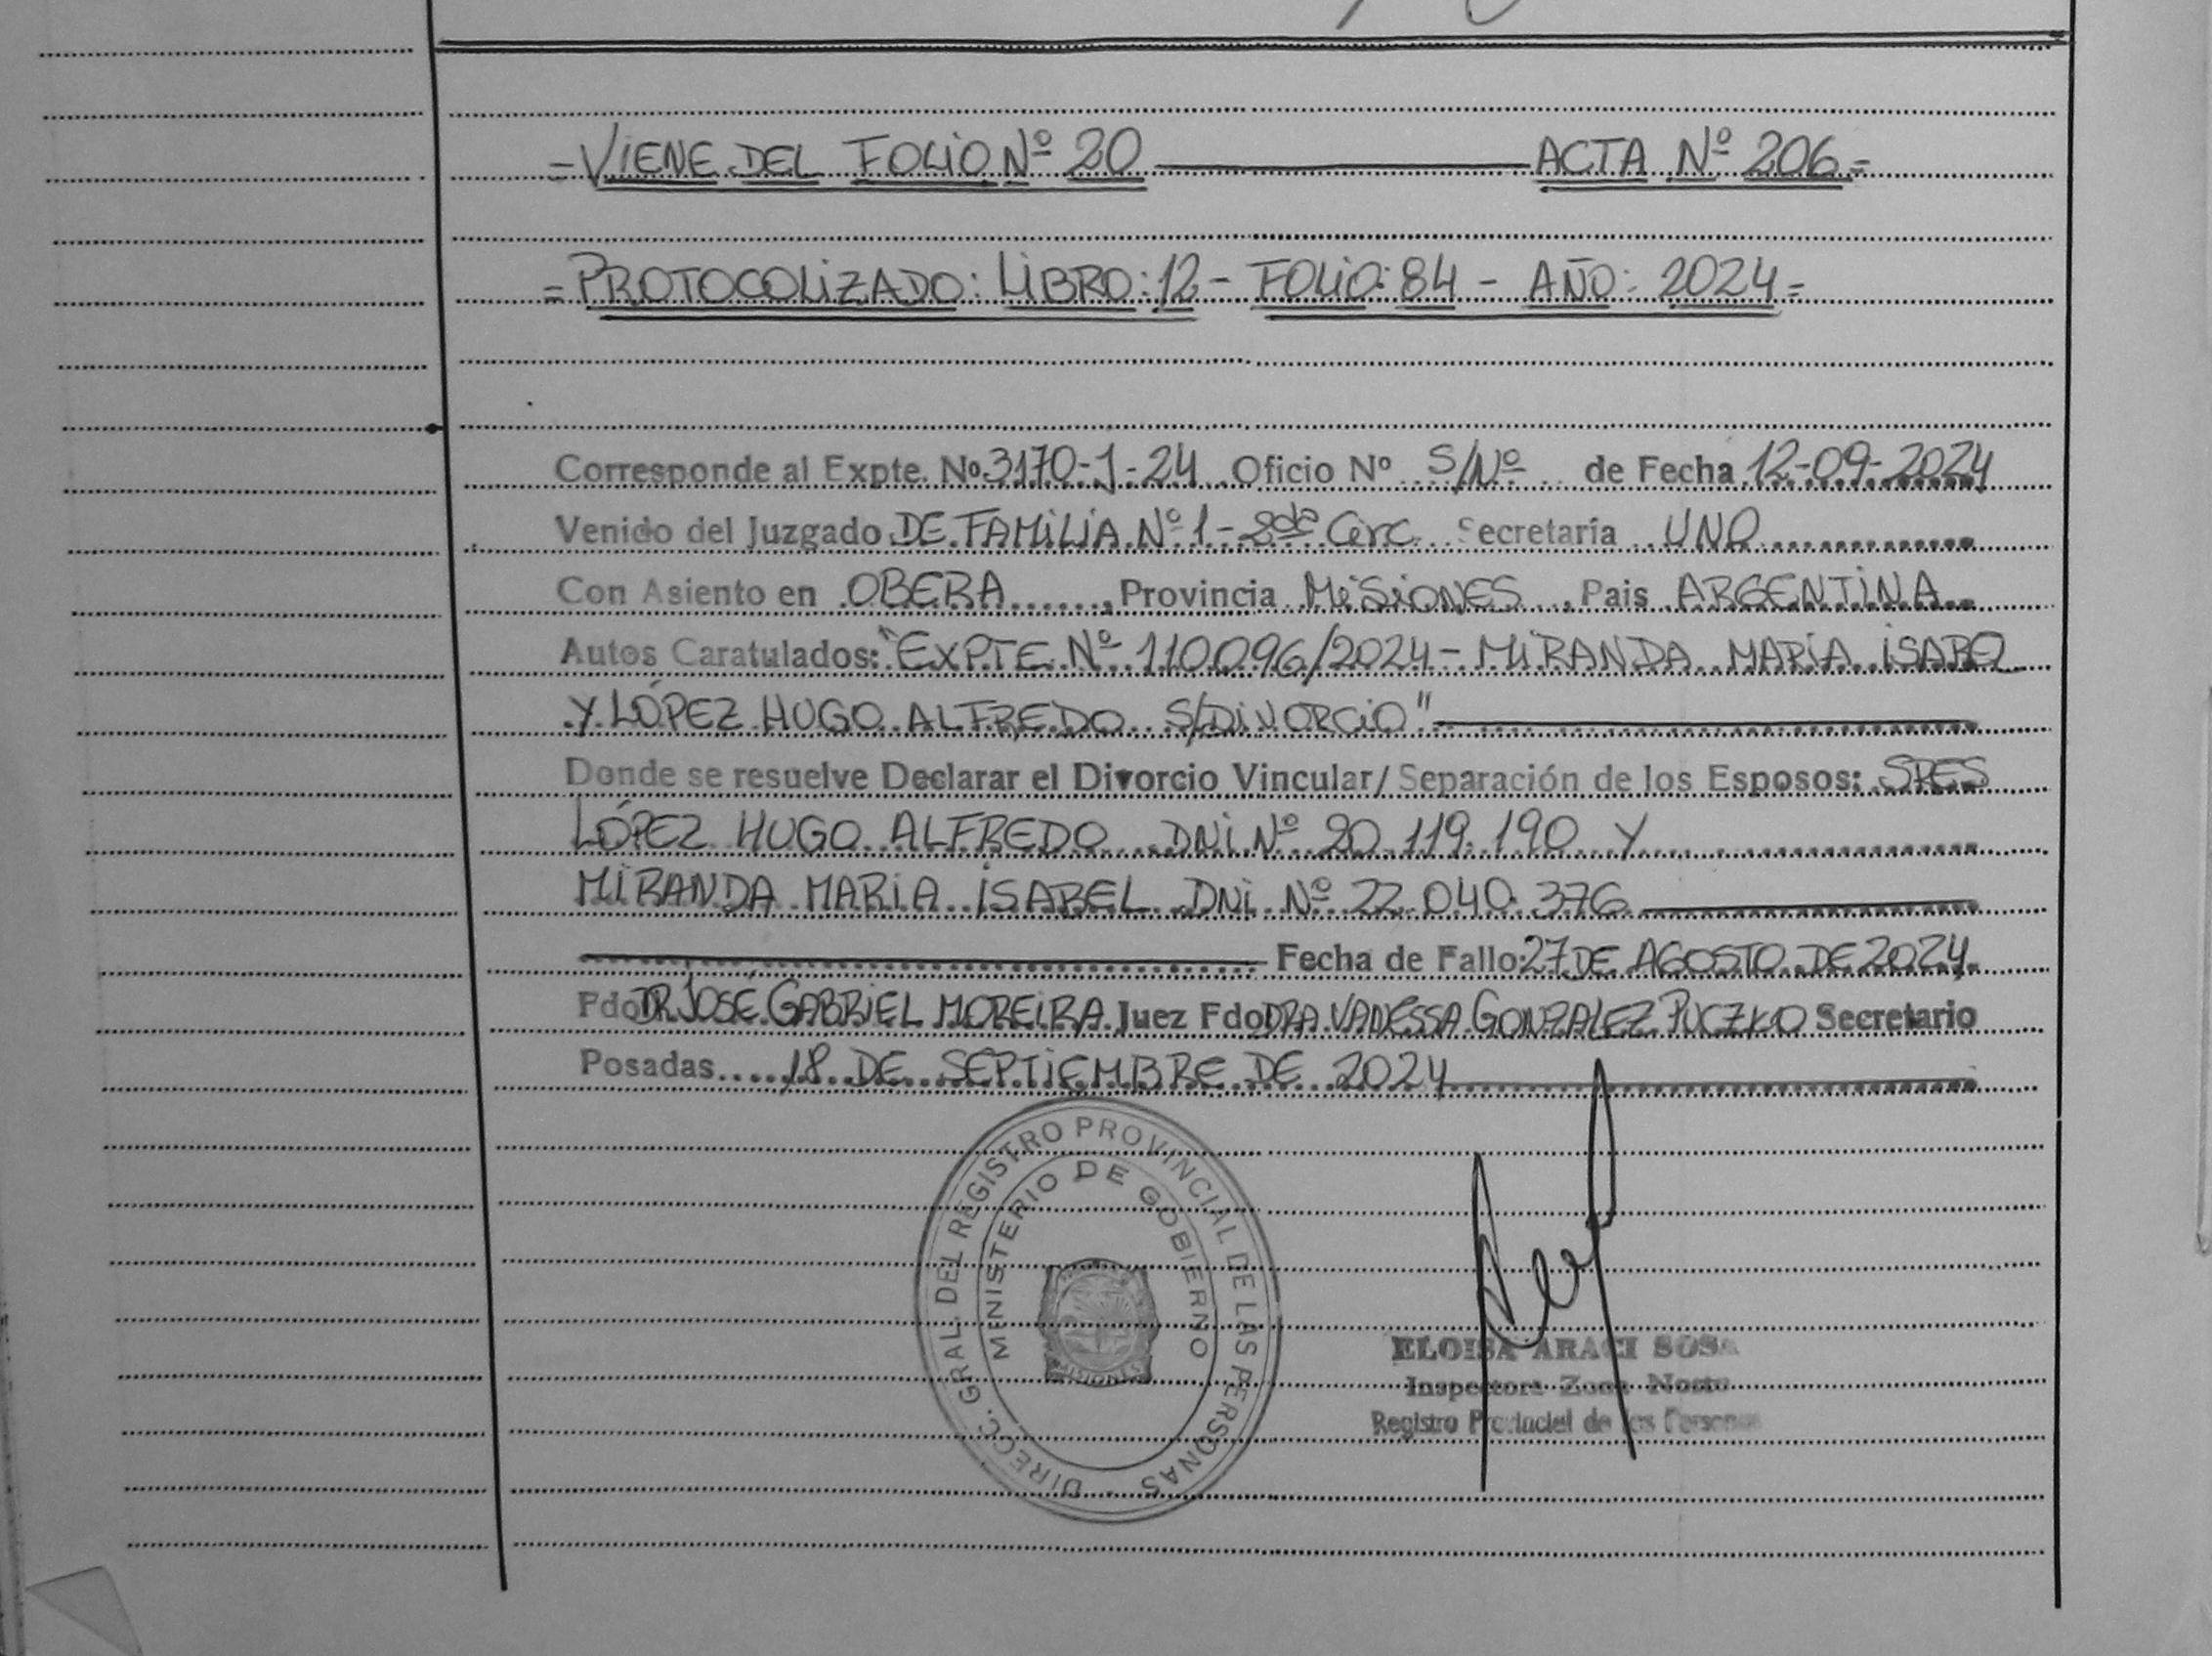 = VIENE DEL FOLIO Nº 20 ACTA Nº 206 =
= PROTOCOLIZADO: LIBRO: 12 - FOLIO: 84 - AÑO: 2024 =
Corresponde al Expte. Nº 3170-J-24 Oficio Nº S/Nº de Fecha 12-09-2024
Venido del Juzgado DE FAMILIA Nº 1 - 2da Circ. Secretaría UNO
Con Asiento en OBERA, Provincia MISIONES, Pais ARGENTINA
Autos Caratulados: "EXPTE Nº 110096/2024 - MIRANDA MARÍA ISABEL
Y LÓPEZ HUGO ALFREDO S/DIVORCIO"
Donde se resuelve Declarar el Divorcio Vincular/ Separación de los Esposos: SRES
LÓPEZ HUGO ALFREDO DNI Nº 20.119.190 Y
MIRANDA MARIA ISABEL DNI Nº 22.040.376
Fecha de Fallo: 27 DE AGOSTO DE 2024
Fdo DR JOSÉ GABRIEL MOREIRA Juez Fdo DRA VANESSA GONZALEZ PUCZKO Secretario
Posadas 18 DE SEPTIEMBRE DE 2024
DIRECC. GRAL. DEL REGISTRO PROVINCIAL DE LAS PERSONAS
MINISTERIO DE GOBIERNO
MISIONES
ELOISA ARACI SOSA
Inspectora Zona Norte
Registro Provincial de las Personas